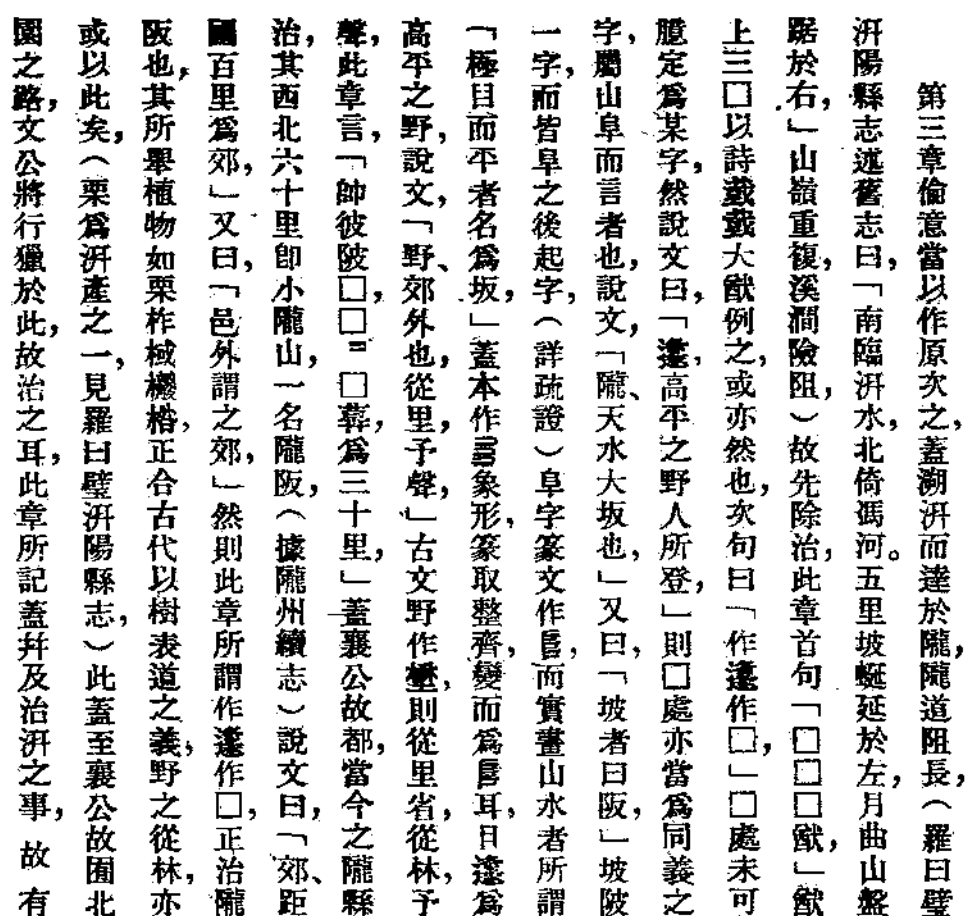 第三章倫意當以作原次之，蓋溯汧而達於隴，隴道阻長，（羅曰璧
汧陽縣志述舊志曰，「南臨汧水，北倚馮河。五里坡蜒延於左，月曲山盤
踞於右，」山嶺重複，溪澗險阻，）故先除治，此章首句「□□□猷，」猷
上三□以詩秩秩大猷例之，或亦然也，次句曰「作邍作□，」□處未可
臆定爲某字，然說文曰，「邍，高平之野人所登，」則□處亦當爲同義之
字，屬山阜而言者也，說文，「隴、天水大坂也，」又曰，「坡者曰阪，」坡陂
一字，而皆阜之後起字，（詳疏證）阜字篆文作𨸏，而實畫山水者所謂
「極目而平者名爲坂，」蓋本作象形，篆取整齊，變而爲𨸏耳，且邍爲
高平之野，說文，「野、郊外也，從里，予聲，」古文野作壄，則從里省，從林，予
聲，此章言，「帥彼陂□，□＝□䓸，爲三十里，」蓋襄公故都，當今之隴縣
治，其西北六十里卽小隴山，一名隴阪，（據隴州續志）說文曰，「郊、距
國百里爲郊，」又曰，「邑外謂之郊，」然則此章所謂作邍作□，正治隴
阪也，其所舉植物如栗柞棫櫻楛，正合古代以樹表道之義，野之從林，亦
或以此矣，（栗爲汧產之一，見羅曰璧汧陽縣志，）此蓋至襄公故囿北
園之路，文公將行獵於此，故治之耳，此章所記蓋幷及治汧之事，故有